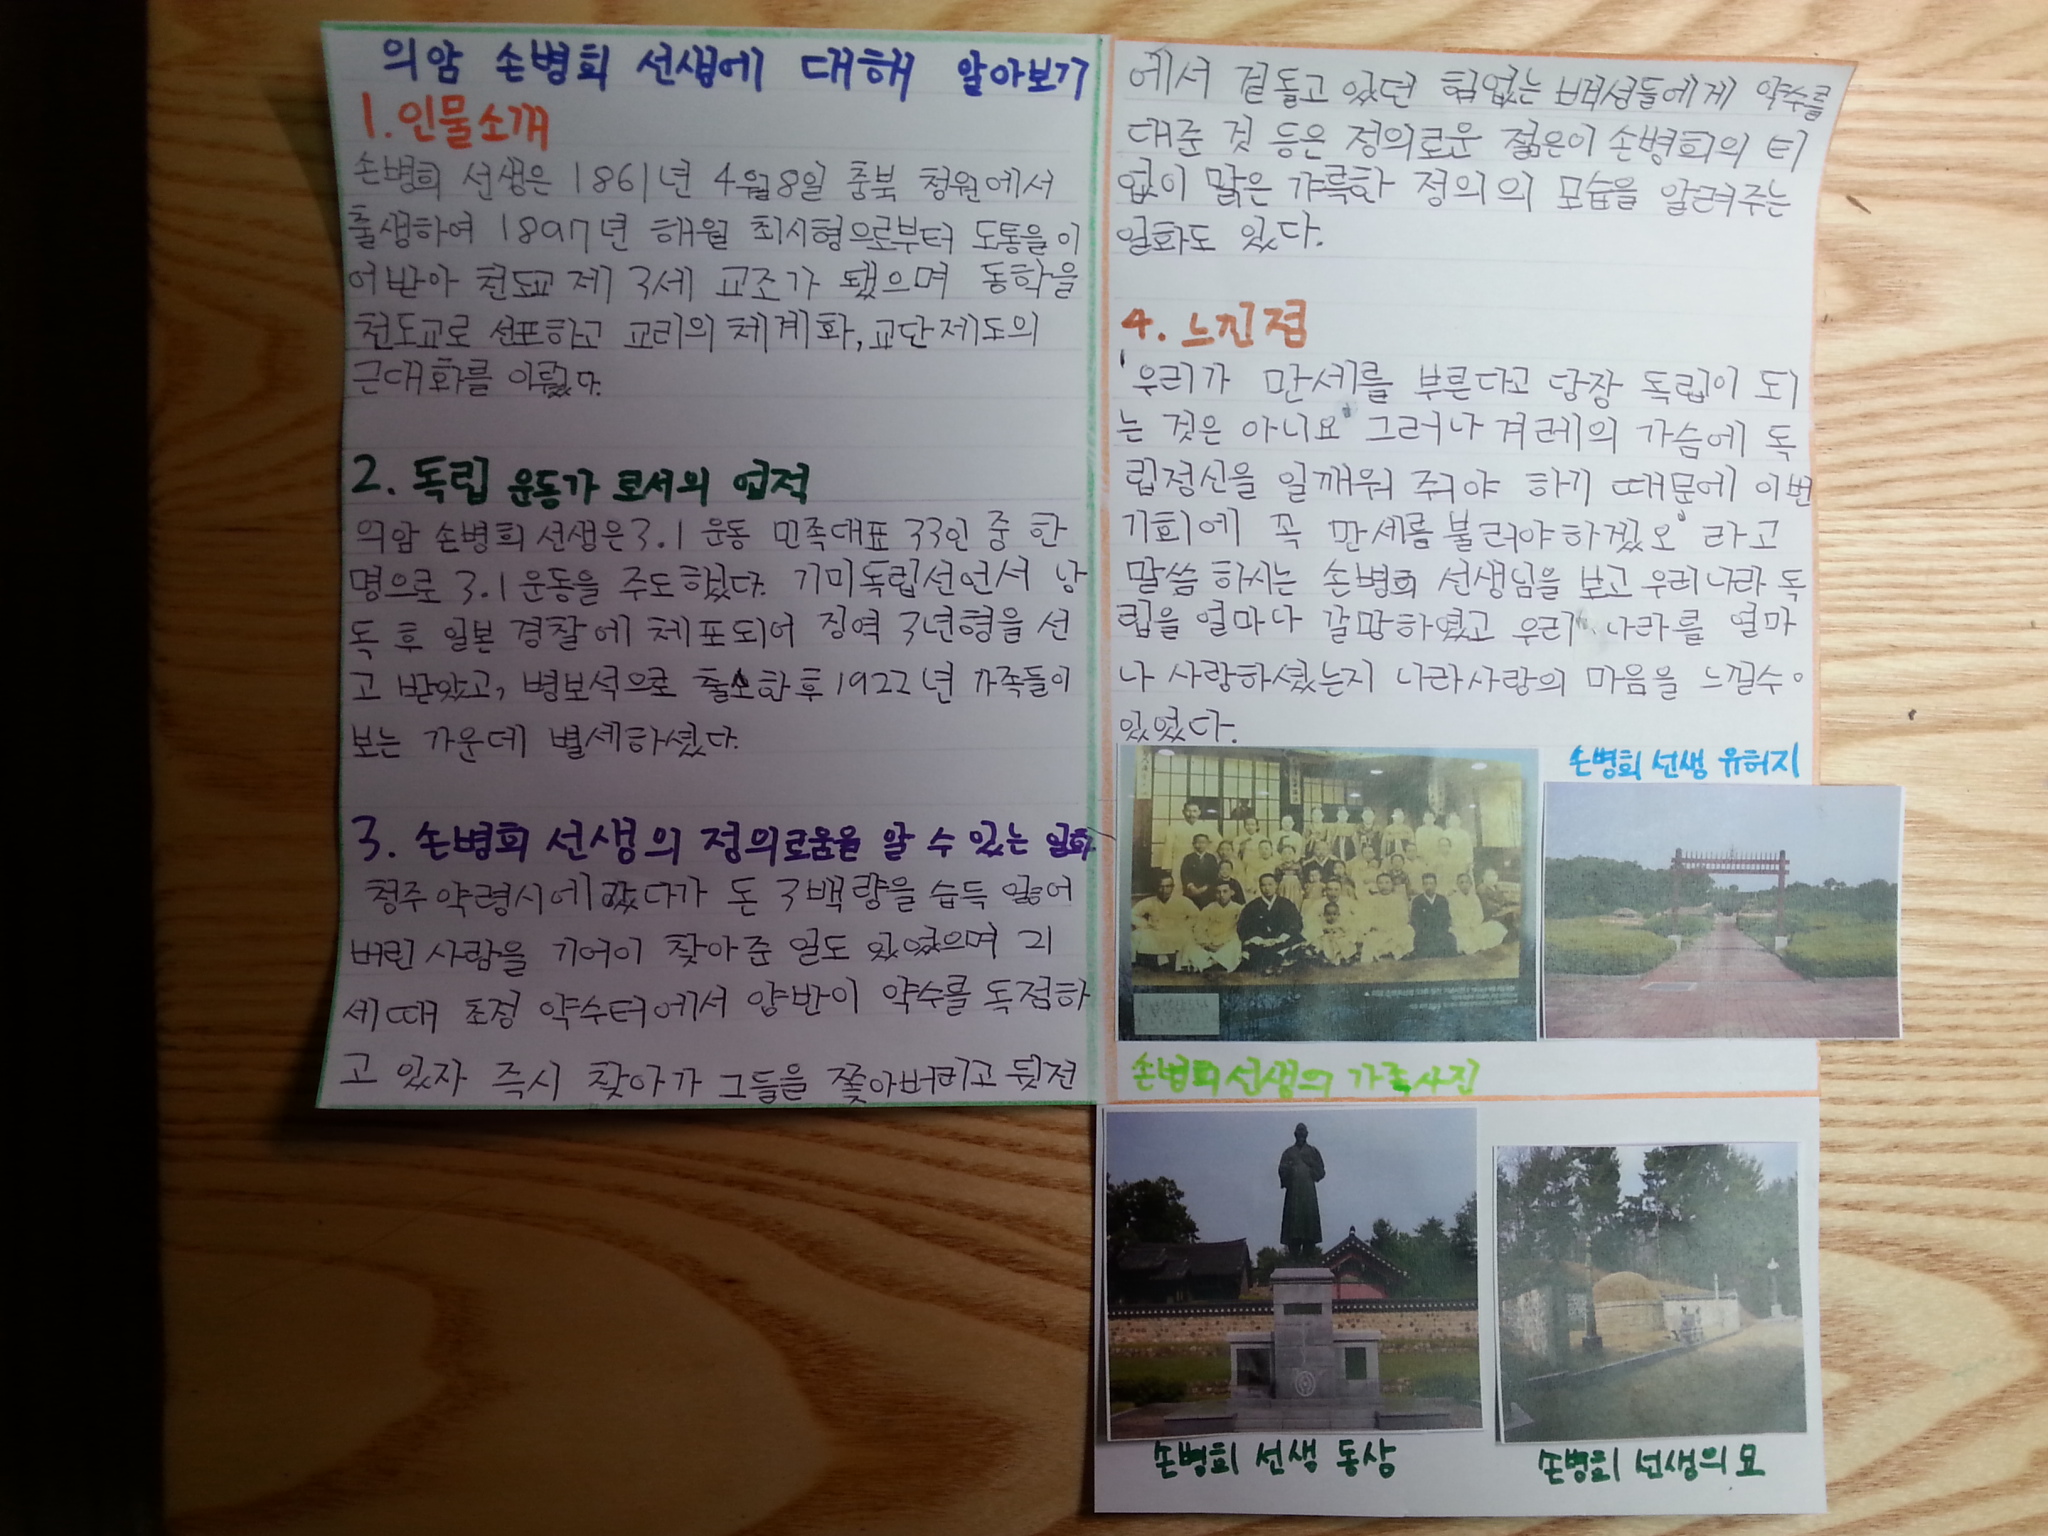 의암 손병희 선생에 대해 알아보기
1. 인물소개
손병희 선생은 1861년 4월 8일 충북 청원에서
출생하여 1897년 해월 최시형으로부터 도통을 이
어받아 천도교 제 3세 교조가 됐으며 동학을
천도교로 선포하고 교리의 체계화, 교단제도의
근대화를 이뤘다.
2. 독립 운동가 로서의 업적
의암 손병희 선생은 3.1 운동 민족대표 33인 중 한
명으로 3.1 운동을 주도했다. 기미독립선언서 낭
독 후 일본 경찰에 체포되어 징역 3년형을 선
고 받았고, 병보석으로 출소한후 1922년 가족들이
보는 가운데 별세하셨다.
3. 손병희 선생의 정의로움을 알 수 있는 일화
청주 약령시에 갔다가 돈 3백량을 습득 잃어
버린 사람을 기어이 찾아준 일도 있었으며 괴
세때 초정 약수터에서 양반이 약수를 독점하
고 있자 즉시 찾아가 그들을 쫓아버리고 뒷전
에서 겉돌고 있던 힘없는 백성들에게 약수를
대준 것 등은 정의로운 젊은이 손병희의 티
없이 맑은 갸륵한 정의의 모습을 알려주는
일화도 있다.
4. 느낀점
'우리가 만세를 부른다고 당장 독립이 되
는 것은 아니요 그러나 겨레의 가슴에 독
립정신을 일깨워 주어야 하기 때문에 이번
기회에 꼭 만세를 불러야하겠오' 라고
말씀 하시는 손병희 선생님을 보고 우리나라 독
립을 얼마나 갈망하였고 우리 나라를 얼마
나 사랑하셨는지 나라사랑의 마음을 느낄수
있었다.
손병희 선생 유허지
손병희 선생의 가족사진
손병희 선생 동상
손병희 선생의 묘